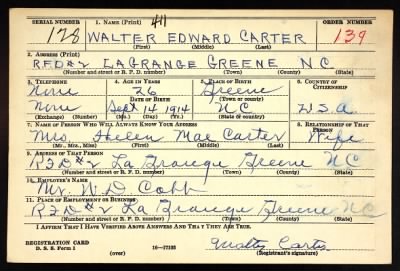 SERIAL NUMBER 1. NAME (Print) 411 ORDER NUMBER
128 WALTER EDWARD CARTER 139
(First) (Middle) (Last)
2. ADDRESS (Print)
R.F.D #2 LAGRANGE GREENE N.C.
(Number and street or R. F. D. number) (Town) (County) (State)
3. TELEPHONE 4. AGE IN YEARS 5. PLACE OF BIRTH 6. COUNTRY OF CITIZENSHIP
None 26 Greene
DATE OF BIRTH (Town or county)
None Sept 14 1914 NC U.S.A
(Exchange) (Number) (Mo.) (Day) (Yr.) (State or country)
7. NAME OF PERSON WHO WILL ALWAYS KNOW YOUR ADDRESS 8. RELATIONSHIP OF THAT PERSON
Mrs. Helen Mae Carter Wife
(Mr., Mrs., Miss) (First) (Middle) (Last)
9. ADDRESS OF THAT PERSON
RFD #2 La Grange Greene NC
(Number and street or R. F. D. number) (Town) (County) (State)
10. EMPLOYER'S NAME
Mr. W. D Cobb
11. PLACE OF EMPLOYMENT OR BUSINESS
RFD #2 La Grange Greene NC
(Number and street or R. F. D. number) (Town) (County) (State)
I AFFIRM THAT I HAVE VERIFIED ABOVE ANSWERS AND THAT THEY ARE TRUE.
REGISTRATION CARD Walter Carter
D. S. S. Form 1 (over) 16—17105 (Registrant's signature)